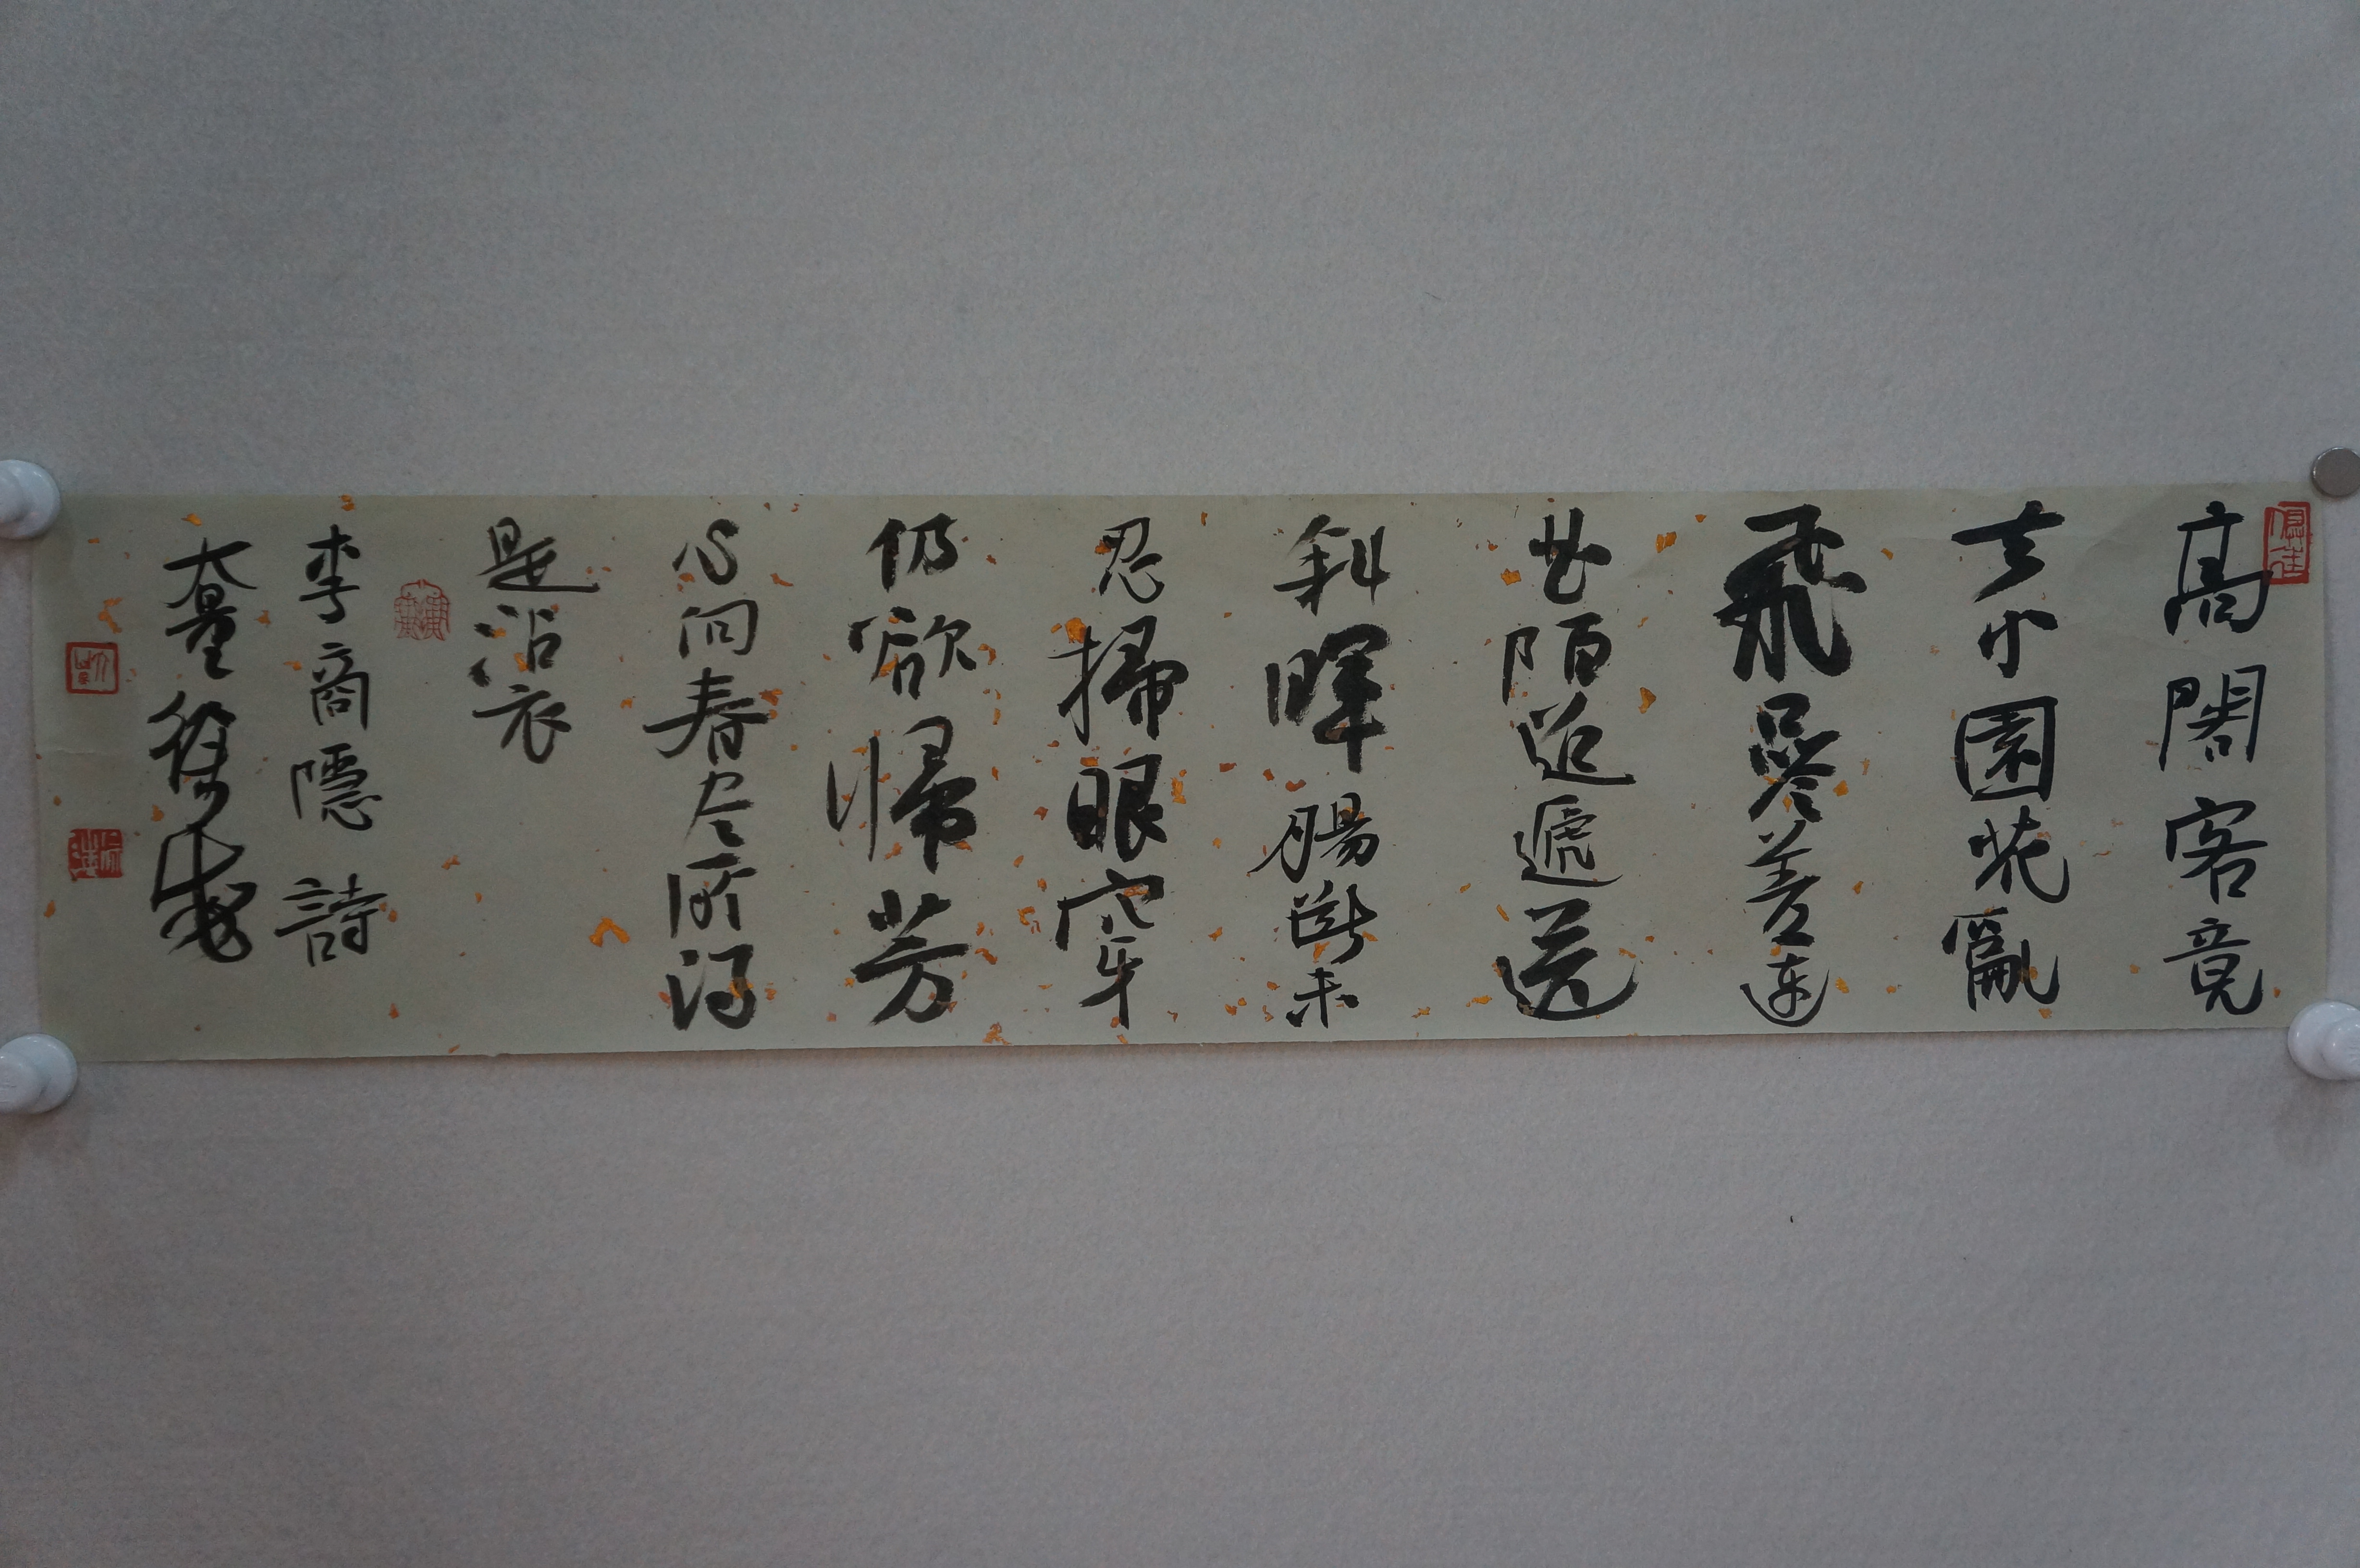 高閣客竟
去小園花亂
飛參差連
曲陌迢遞送
斜暉腸斷未
忍掃眼穿
仍欲帰芳
心向春尽所得
是沾衣
李商隱詩